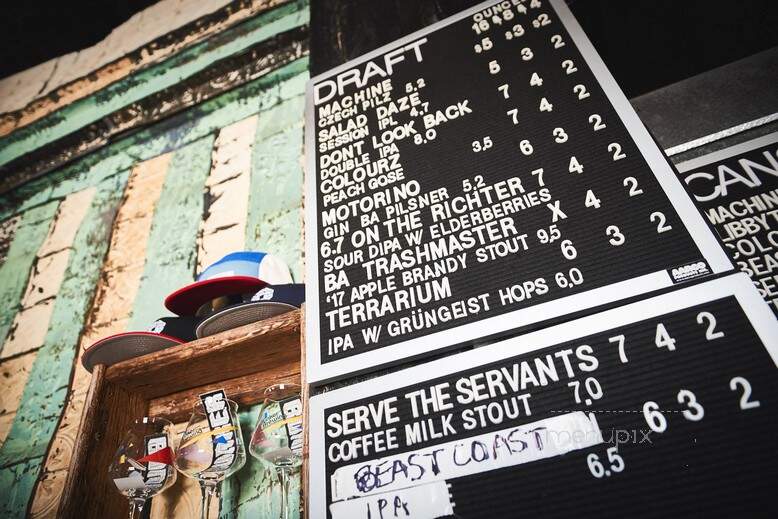 DRAFT
OUNCES
16 8 4
MACHINE $5 $3 $2
CZECH PILZ 5,2
SALAD DAZE 5 3 2
SESSION IPL 4.7
DONT LOOK BACK 7 4 2
DOUBLE IPA 8,0
COLOURZ 7 4 2
PEACH GOSE 3.5
MOTORINO 6 3 2
GIN BA PILSNER 5,2
6.7 ON THE RICHTER 7 4 2
SOUR DIPA W/ ELDERBERRIES
BA TRASHMASTER X 4 2
'17 APPLE BRANDY STOUT 9,5
TERRARIUM 6 3 2
IPA W/ GRÜNGEIST HOPS 6,0
SERVE THE SERVANTS 7 4 2
COFFEE MILK STOUT 7,0
BEAST COAST 6 3 2
IPA 6.5
CANS
MACHIN
menupix